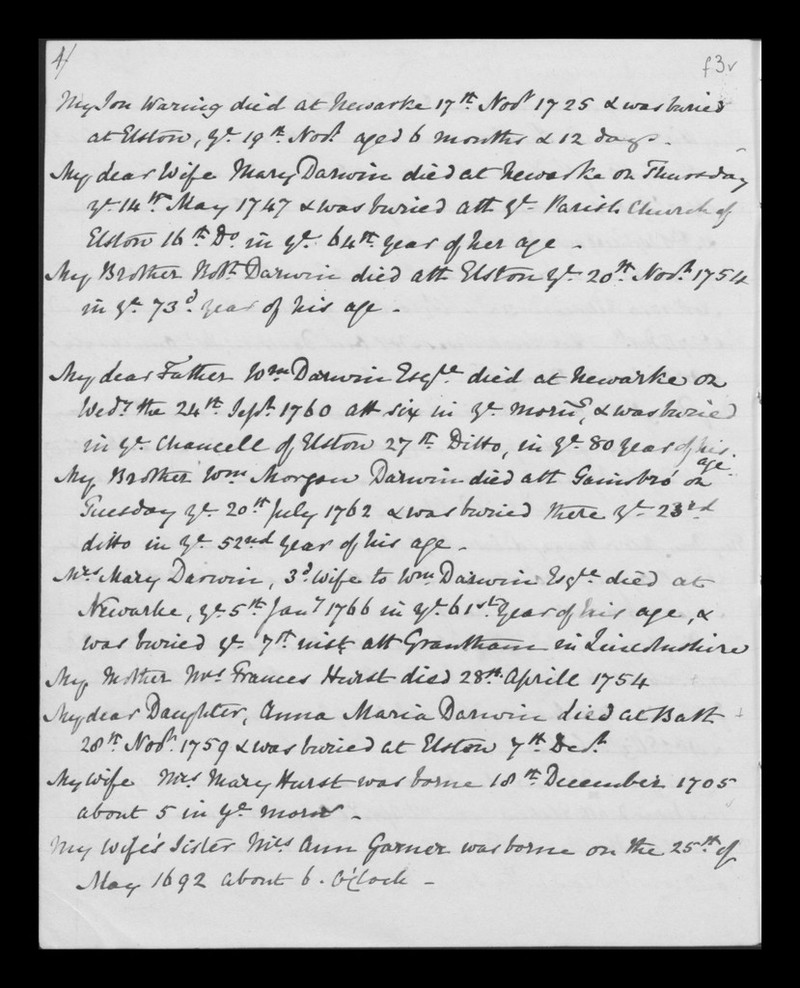 4/
f3v
My Son Waring died at Newarke 17th Novr 1725 & was buried
at Elston, ye 19th Novr aged 6 months & 12 days.
My dear Wife Mary Darwin died at Newarke on Thursday
ye 14th May 1747 & was buried att ye Parish Church of
Elston 16th Do in ye 64th year of her age -
My Brother Robt Darwin died att Elston ye 20th Novr 1754
in ye 73d year of his age -
My dear Father Wm Darwin Esqre died at Newarke on
Wedy the 24th Sepr 1760 att six in ye morng, & was buried
in ye Chancell of Elston 27th Ditto, in ye 80 year of his
age.
My Brother Wm Morgan Darwin died att Gainsbro' on
Tuesday ye 20th July 1762 & was buried there ye 23rd
ditto in ye 52nd year of his age -
Mrs Mary Darwin, 3d wife to Wm Darwin Esqre died at
Newarke, ye 5th Jany 1766 in ye 61st year of his age, &
was buried ye 7th inst att Grantham in Lincolnshire
My Mother Mrs Frances Hurst died 28th Aprill 1754
My dear Daughter, Anna Maria Darwin died at Bath
28th Novr 1759 & was buried at Elston 7th Decr
My wife Mrs Mary Hurst was borne 18th December 1705
about 5 in ye morn -
My Wife's Sister Mrs Ann Garner was borne on the 25th of
May 1692 about 6. O'Clock -